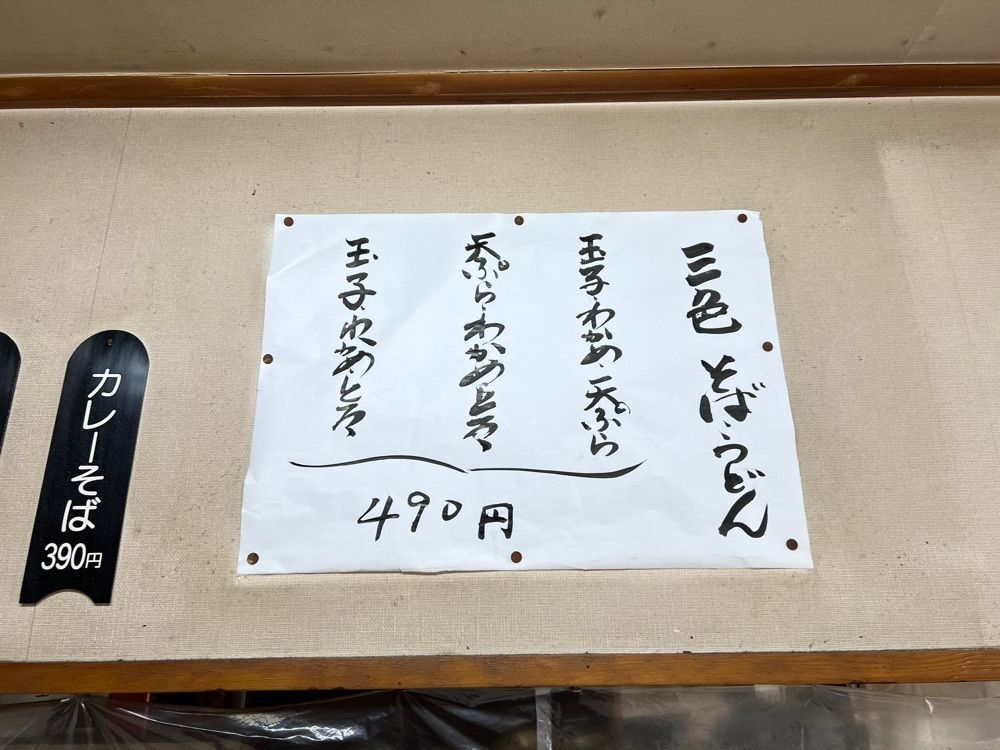 三色 そば・うどん
玉子・わかめ・天ぷら
天ぷら・わかめ・とろろ
玉子・わかめ・とろろ
490円
カレーそば
390円